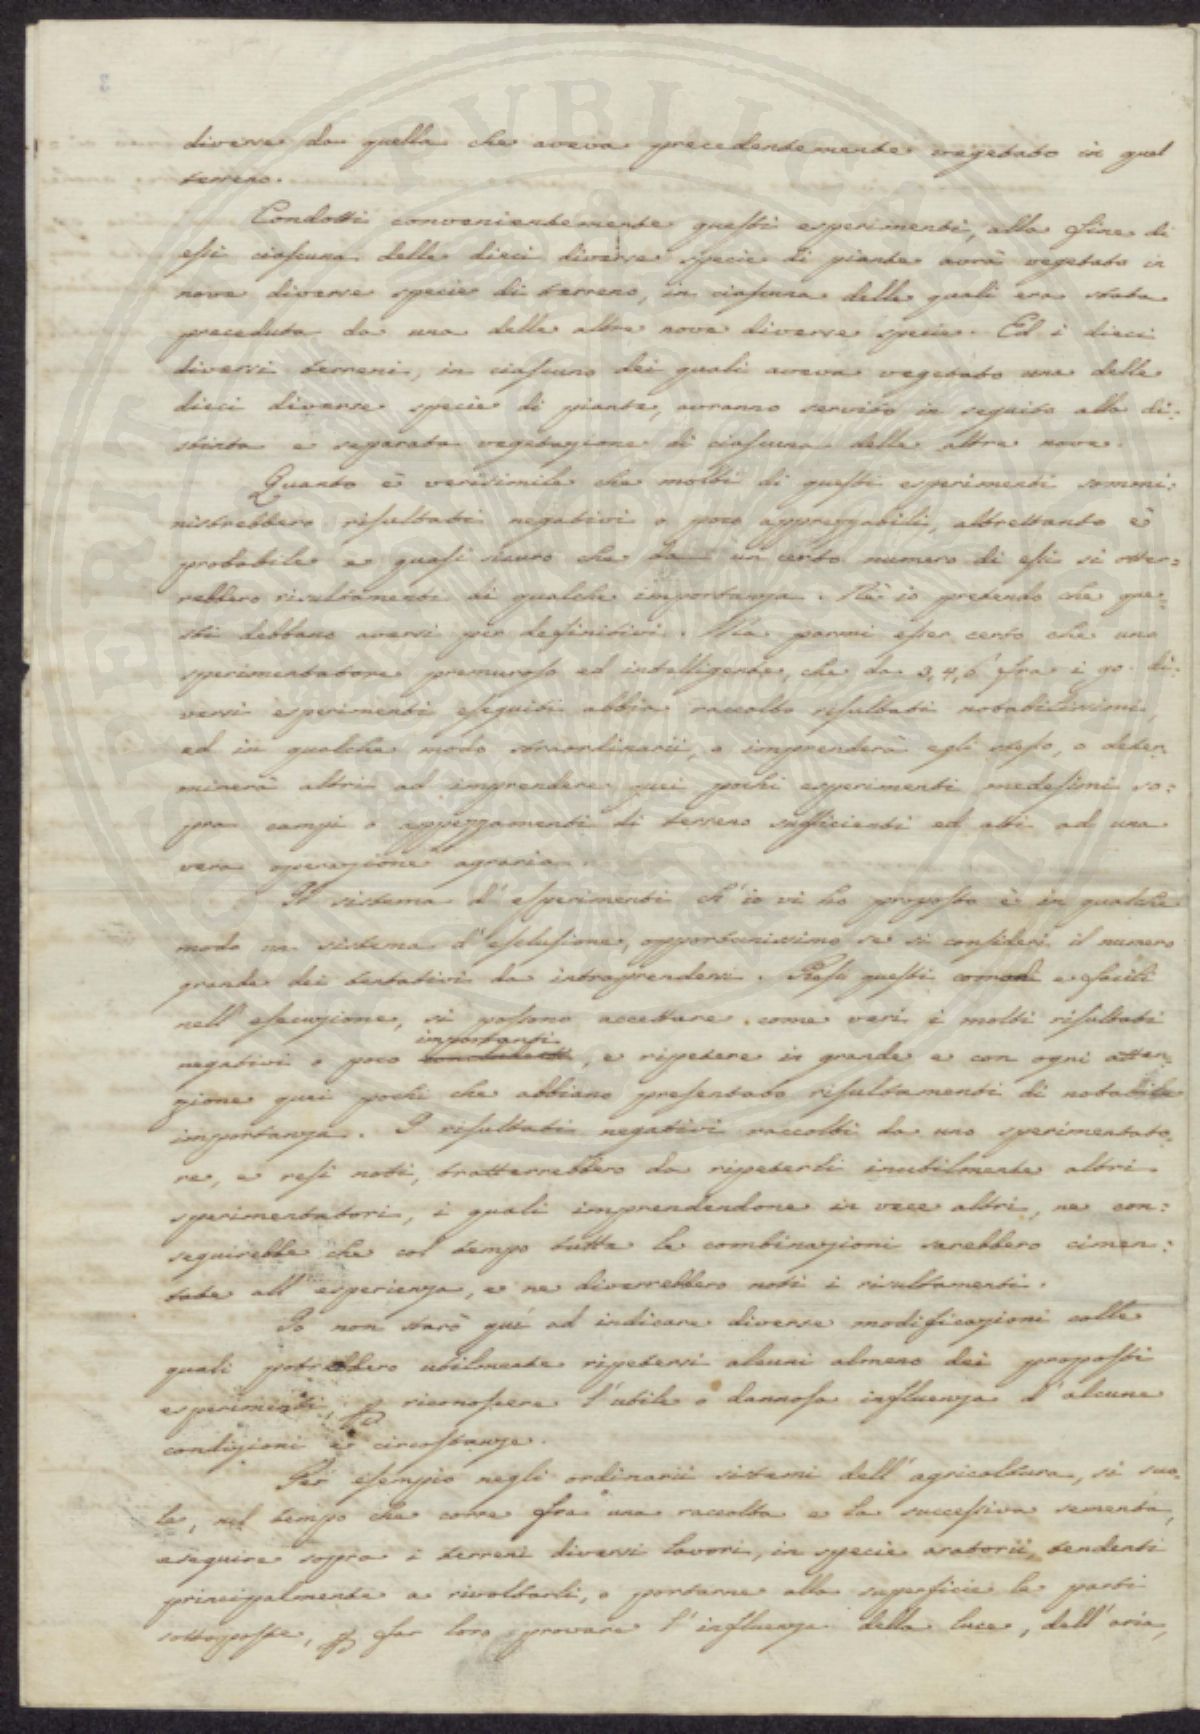 diverse da quella che aveva precedentemente vegetato in quel
terreno.
Condotti convenientemente questi esperimenti, alla fine di
essi ciascuna delle dieci diverse specie di piante avrà vegetato in
nove diverse specie di terreno, in ciascuna delle quali era stata
preceduta da una delle altre nove diverse specie. Ed i dieci
diversi terreni, in ciascuno dei quali aveva vegetato una delle
dieci diverse specie di piante, avranno servito in seguito alla di:
stinta e separata vegetazione di ciascuna delle altre nove.
Quanto è verisimile che molti di questi esperimenti sommi:
nistrebbero risultati negativi o poco apprezzabili, altrettanto è
probabile e quasi sicuro che da un certo numero di essi si otter:
rebbero risultamenti di qualche importanza. Nè io pretendo che que:
sti debbano aversi per definitivi. Ma parmi esser certo che uno
sperimentatore premuroso ed intelligente, che da 3, 4, 6 fra i 90 di:
versi esperimenti eseguiti abbia raccolto risultati notabilissimi,
ed in qualche modo straordinarii, o imprenderà egli stesso, o deter:
minerà altri ad imprendere quei pochi esperimenti medesimi so:
pra campi o appezzamenti di terreno sufficienti ed atti ad una
vera operazione agraria.
Il sistema d'esperimenti ch'io vi ho proposto è in qualche
modo un sistema d'esclusione, opportunissimo se si consideri il numero
grande dei tentativi da intraprendersi. Resi questi comodi e facili
nell'esecuzione, si possono accettare come veri i molti risultati
importanti
negativi o poco , e ripetere in grande e con ogni atten:
zione quei pochi che abbiano presentato risultamenti di notabile
importanza. I risultati negativi raccolti da uno sperimentato:
re, e resi noti, tratterrebbero da ripeterli inutilmente altri
sperimentatori, i quali imprendendone in vece altri, ne con:
seguirebbe che col tempo tutte le combinazioni sarebbero cimen:
tate all'esperienza, e ne diverrebbero noti i risultamenti.
Io non starò quì ad indicare diverse modificazioni colle
quali potrebbero utilmente ripetersi alcuni almeno dei proposti
esperimenti, p riconoscere l'utile o dannosa influenza d'alcune
condizioni e circostanze.
Per esempio negli ordinarii sistemi dell'agricoltura, si suo:
le, nel tempo che corre fra una raccolta e la successiva sementa,
eseguire sopra i terreni diversi lavori, in specie aratorii, tendenti
principalmente a rivoltarli, o portarne alla superficie le parti
sottoposte, p far loro provare l'influenza della luce, dell'aria,